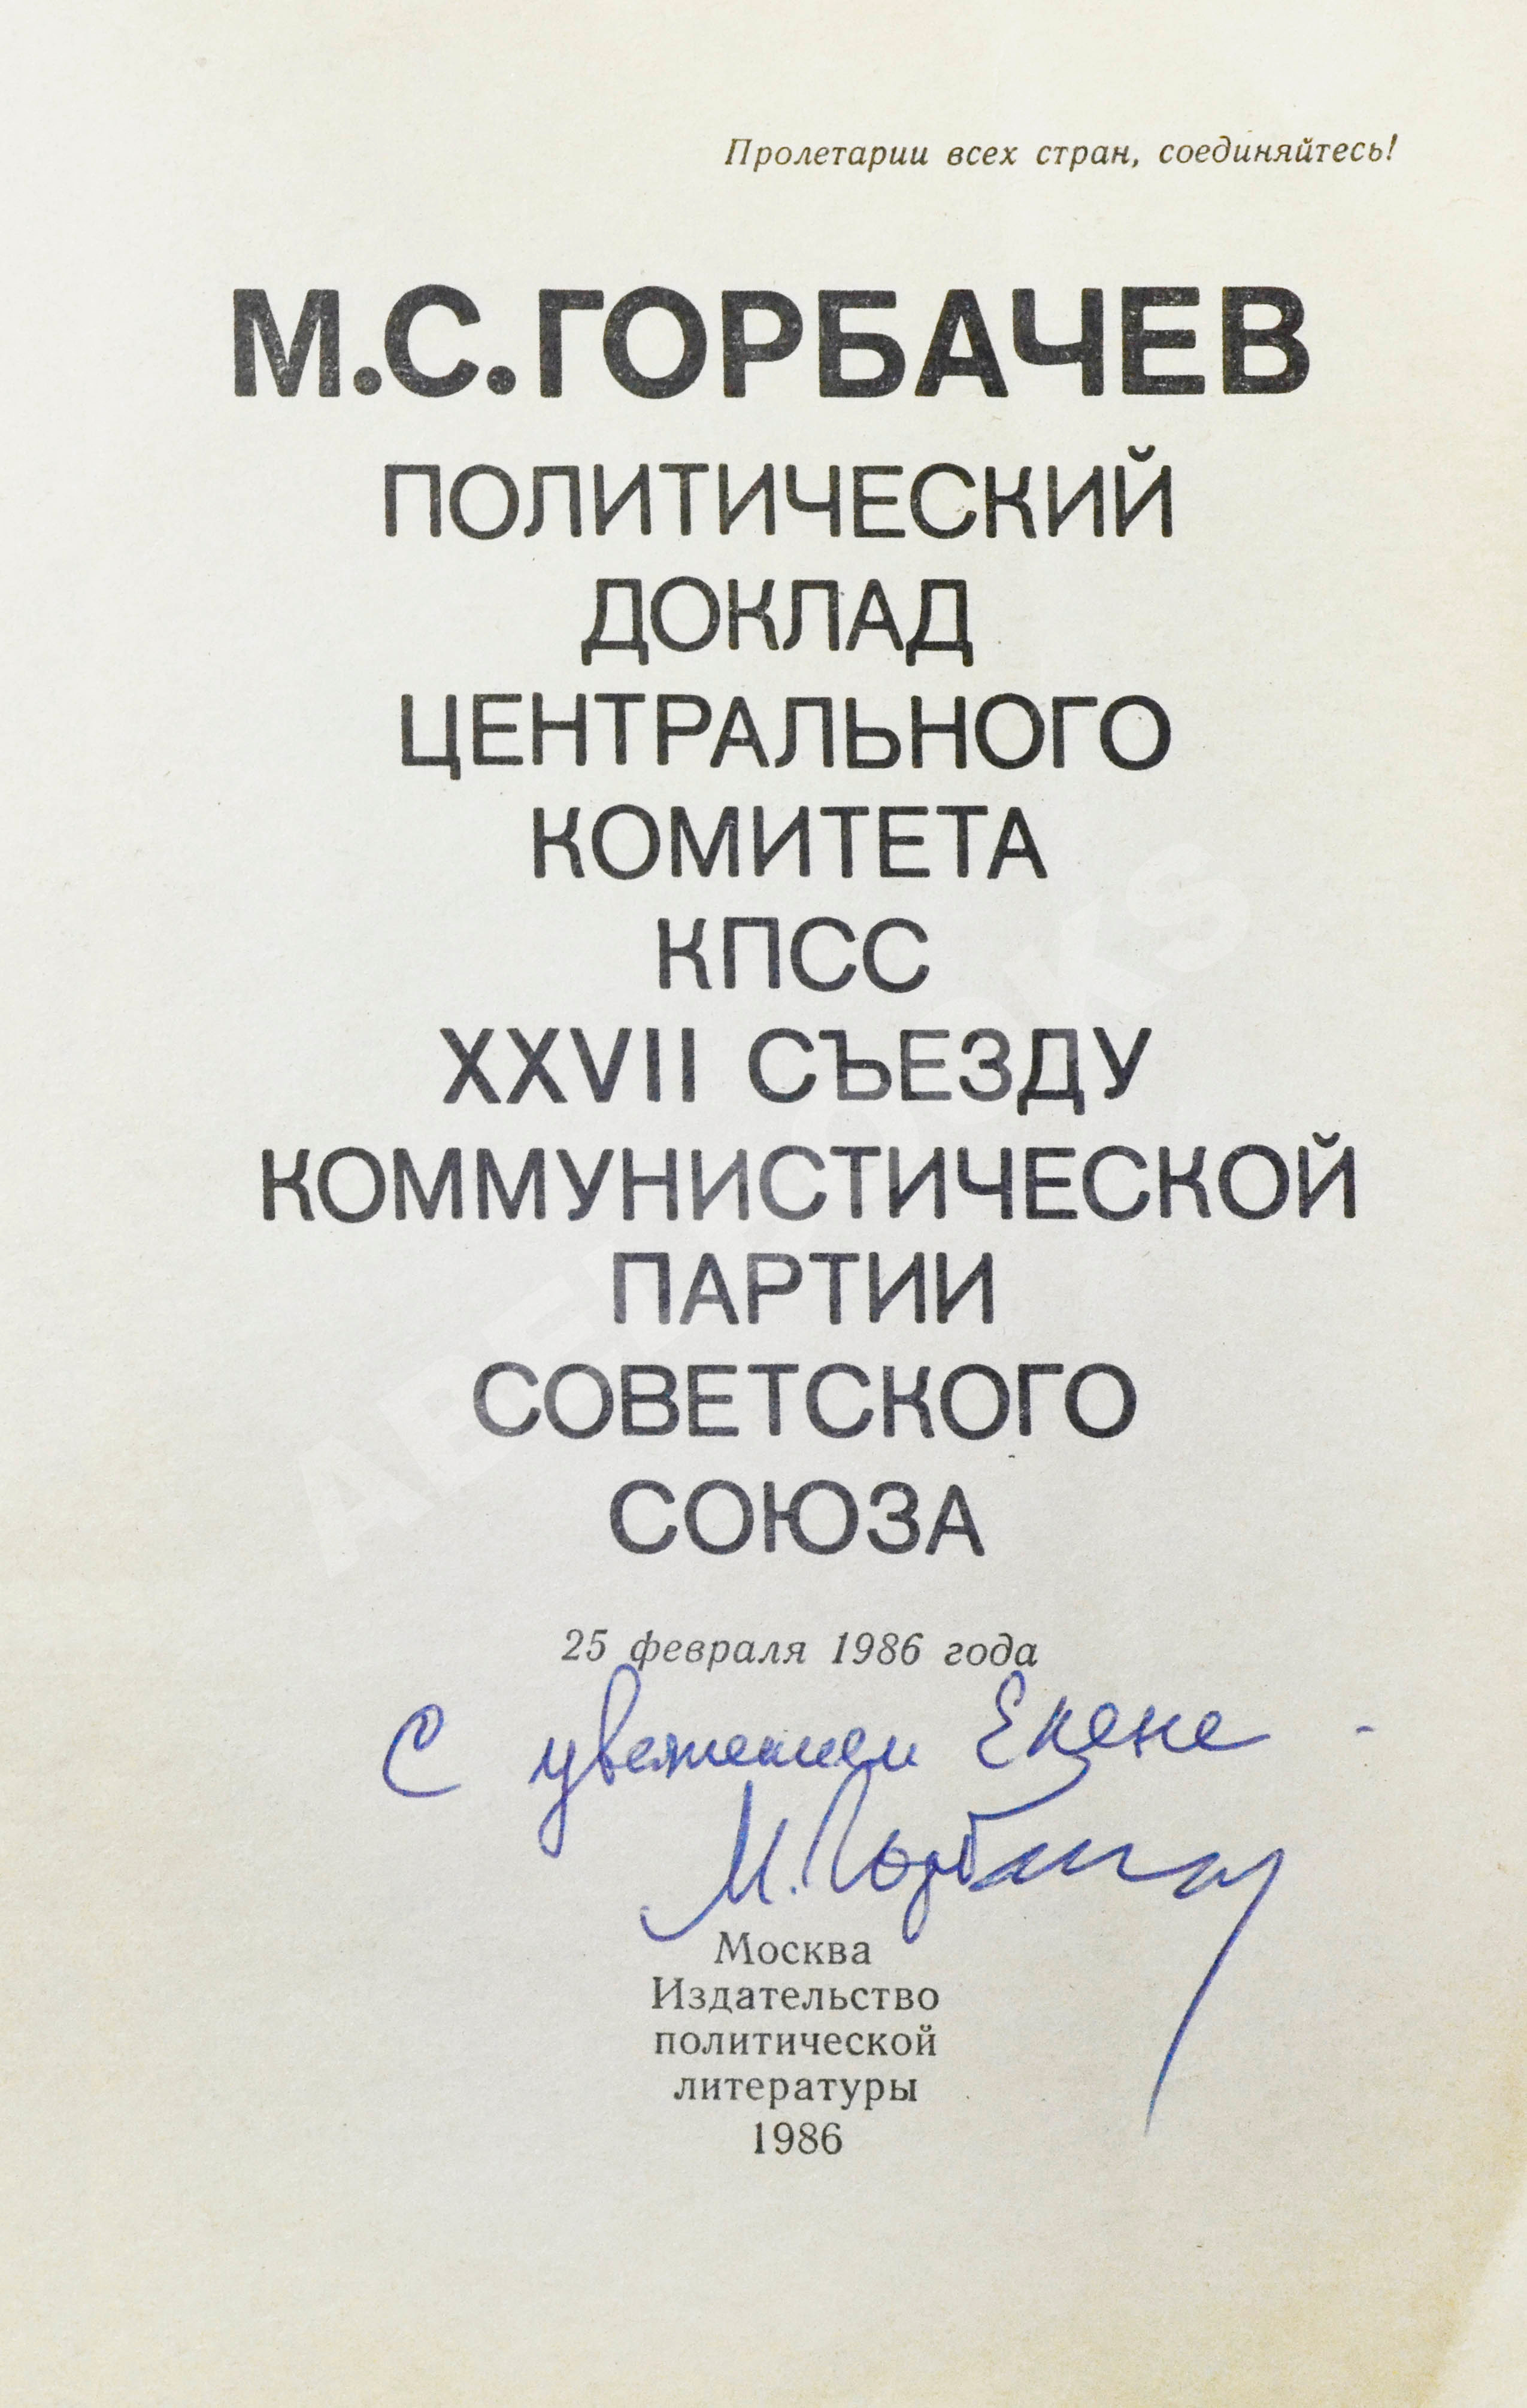 Пролетарии всех стран, соединяйтесь!
М.С.ГОРБАЧЕВ
ПОЛИТИЧЕСКИЙ
ДОКЛАД
ЦЕНТРАЛЬНОГО
КОМИТЕТА
КПСС
XXVII СЪЕЗДУ
КОММУНИСТИЧЕСКОЙ
ПАРТИИ
СОВЕТСКОГО
СОЮЗА
25 февраля 1986 года
С уважением Елене
М. Горбачев
Москва
Издательство
политической
литературы
1986